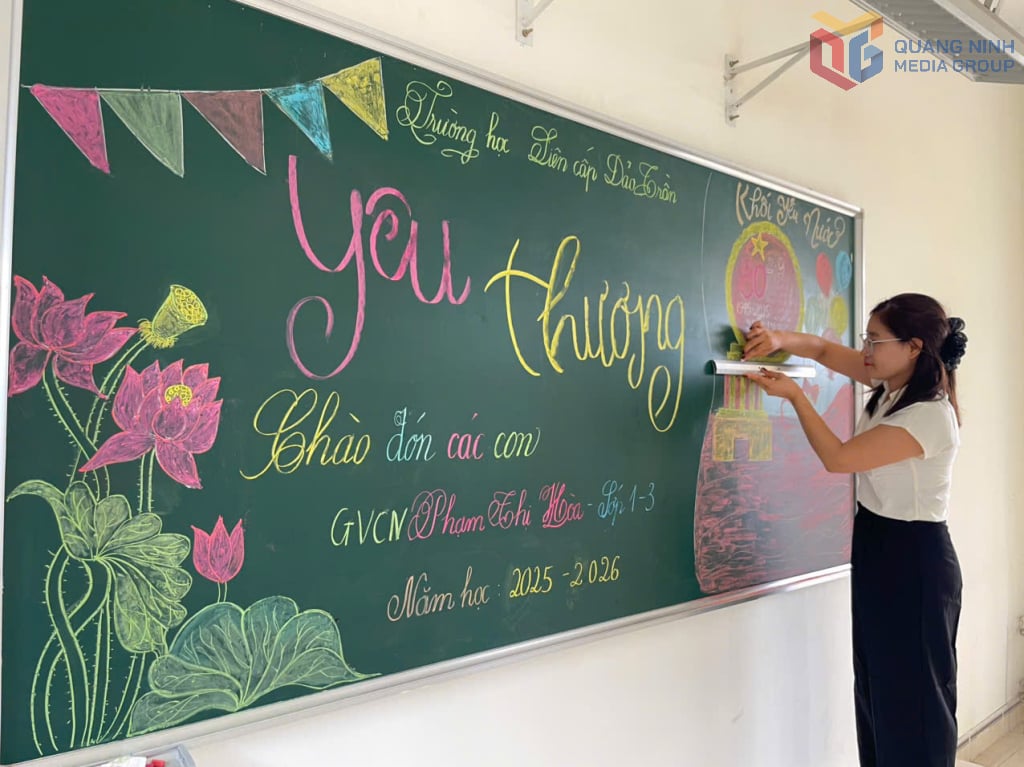 QUANG NINH
MEDIA GROUP
Trường học Liên cấp Đảo Trần
Yêu
thương
Chào đón các con
GVCN Phạm Thị Hòa - Lớp 1-3
Năm học : 2025 - 2026
80